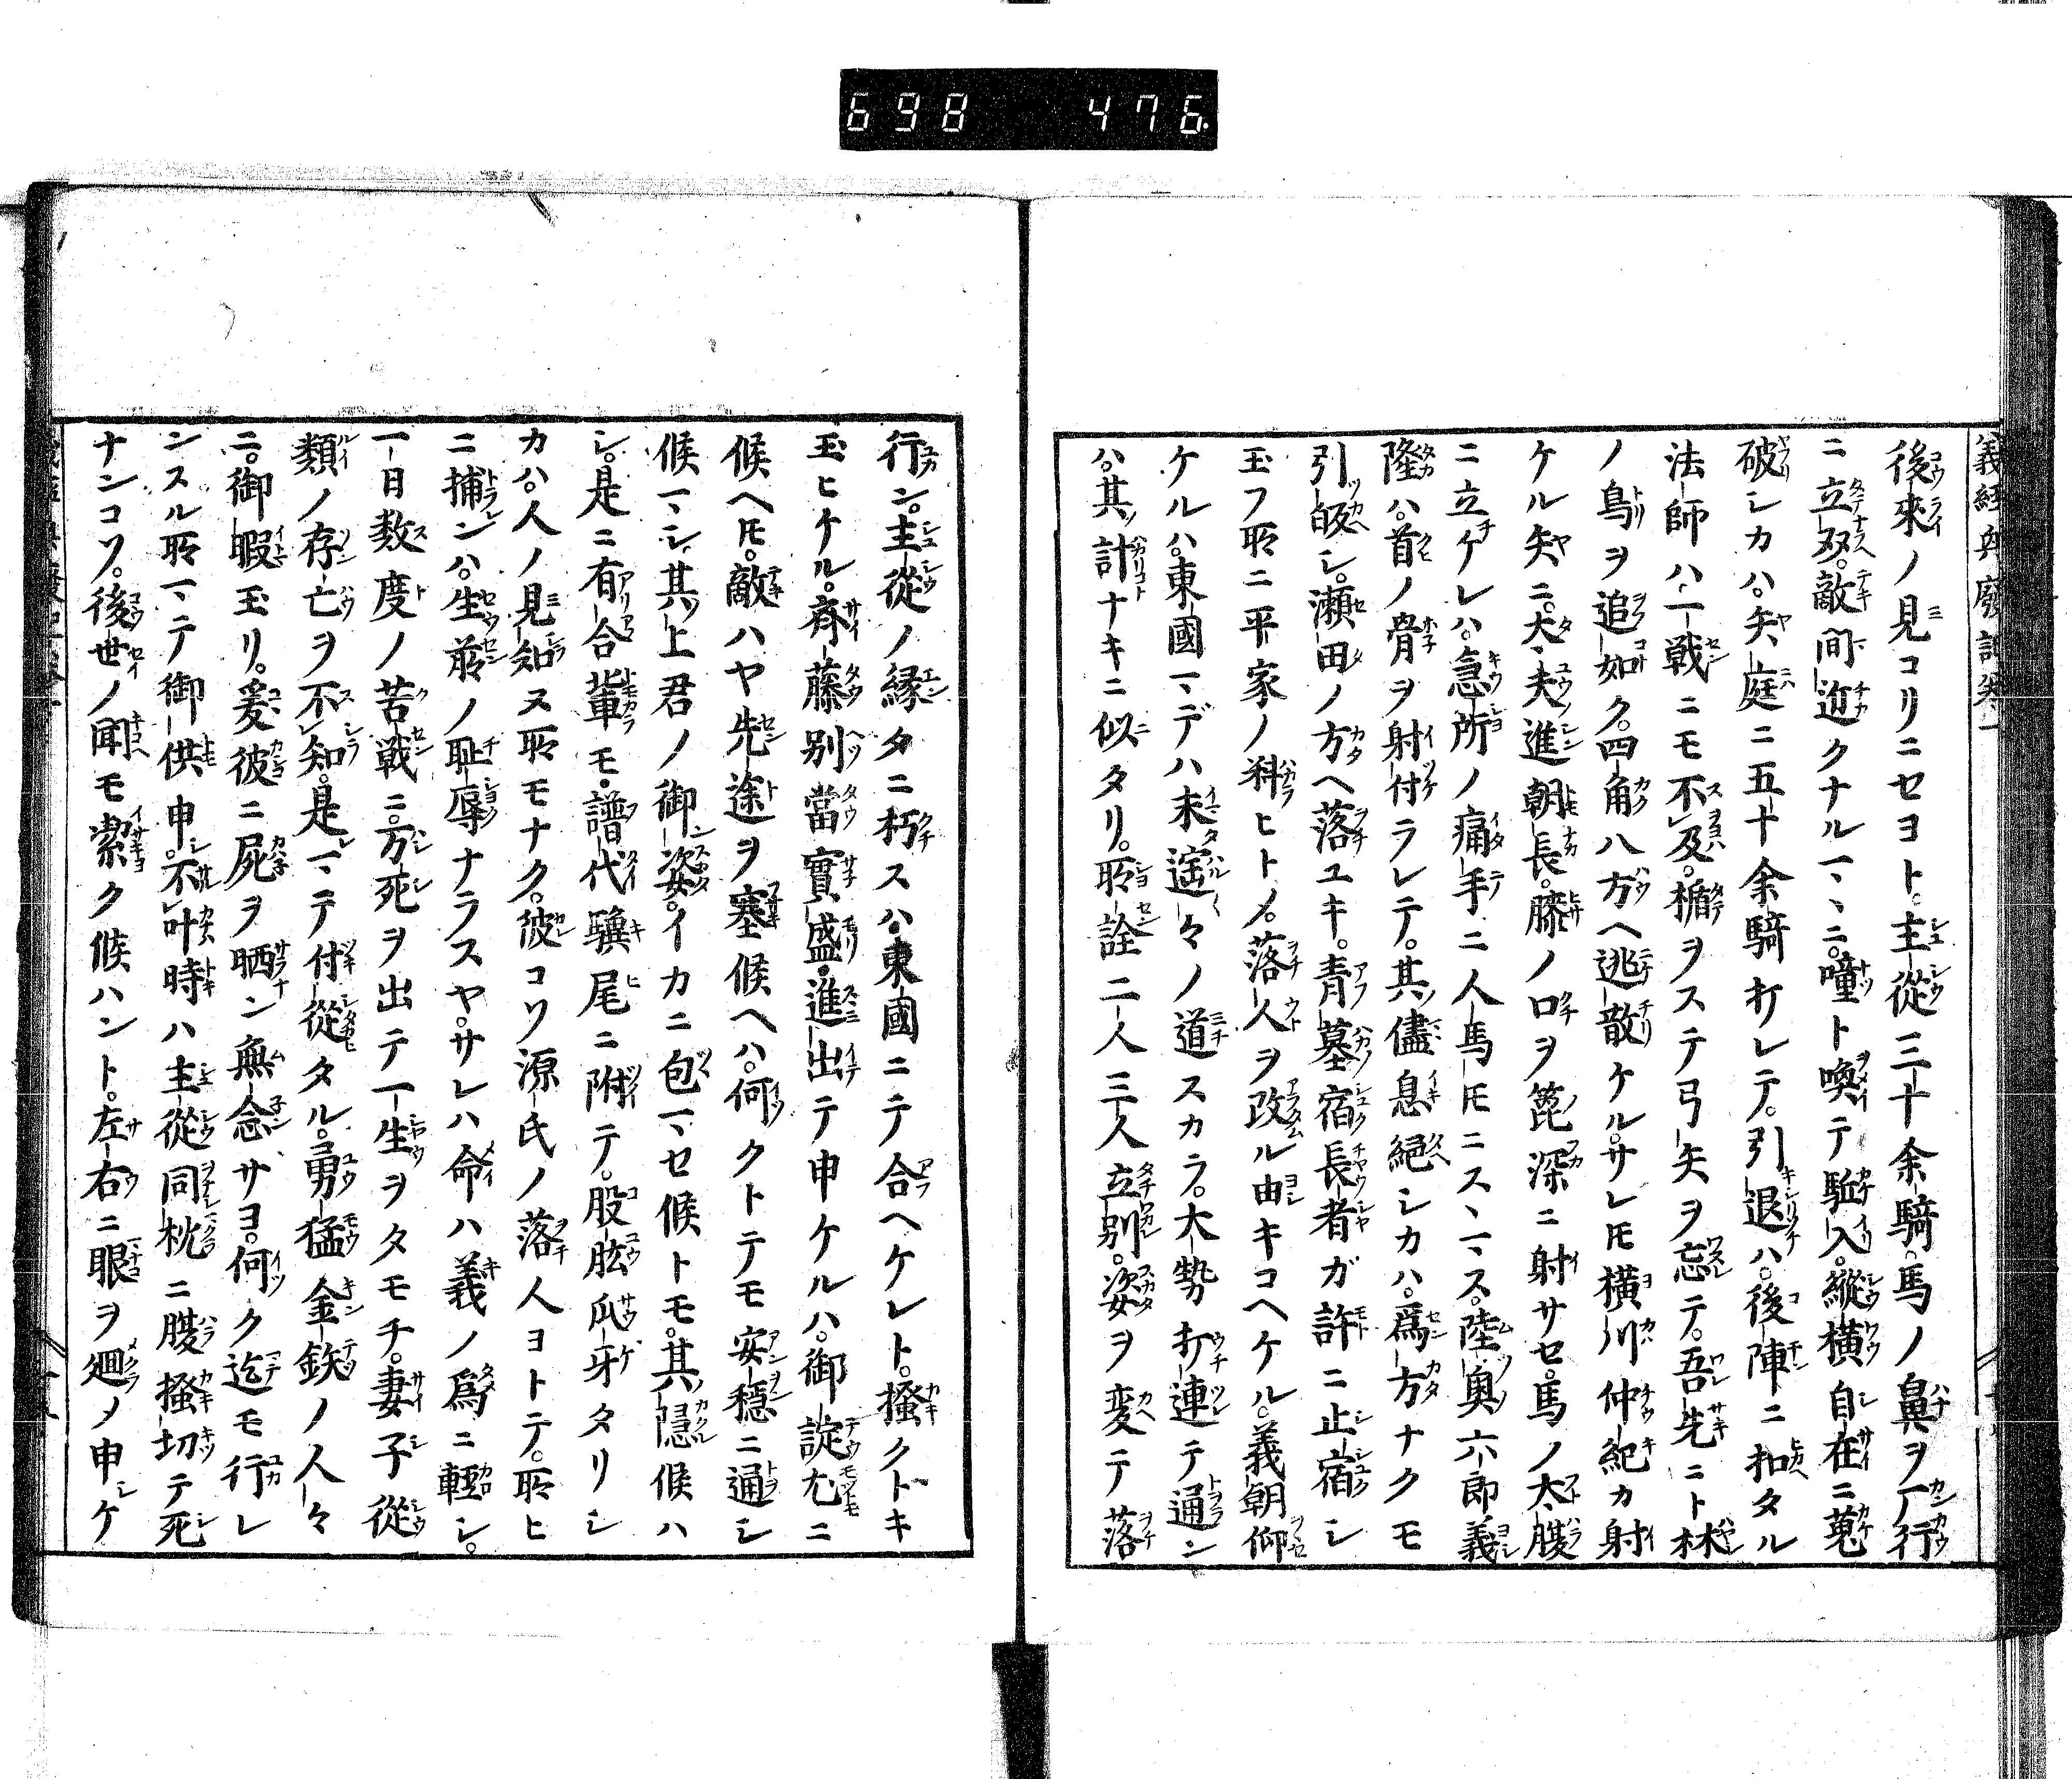 698 476
義經興廢記卷一
後來ノ見コリニセヨト。主從三十余騎。馬ノ鼻ヲ厂行
ニ立双。敵間近クナルマヽニ。噇ト喚テ駈入。縱横自在ニ蒐
破シカハ。矢庭ニ五十余騎打レテ。引退ハ。後陣ニ扣タル
法師ハ一戰ニモ不及。楯ヲステ弓矢ヲ忘テ。吾先ニト林
ノ鳥ヲ追如ク。四角八方ヘ迯散ケル。サレ𪜈横川仲紀カ射
ケル矢ニ。大夫進朝長。膝ノ口ヲ箆深ニ射サセ。馬ノ太腹
ニ立ケレハ。急所ノ痛手ニ人馬𪜈ニスヽマス。陸奥六郎義
隆ハ。首ノ骨ヲ射付ラレテ。其儘息絕シカハ。爲方ナクモ
引皈シ。瀬田ノ方ヘ落ユキ。青墓宿長者ガ許ニ止宿シ
玉フ所ニ平家ノ科ヒトメ。落人ヲ改ル由キコヘケル。義朝仰
ケルハ。東國マデハ末遥々ノ道スカラ。大勢打連テ通ン
ハ。其計ナキニ似タリ。所詮二人三人立別。姿ヲ変テ落
行ン。主從ノ縁タニ朽スハ。東國ニテ合ヘケレト。搔クドキ
玉ヒケル。齊藤別當實盛。進出テ申ケルハ。御諚尤ニ
候ヘ𪜈。敵ハヤ先途ヲ塞候ヘハ。何クトテモ安穩ニ通シ
候マシ。其上君ノ御姿。イカニ包マセ候トモ。其隱候ハ
シ。是ニ有合輩モ。譜代驥尾ニ附テ。股肱爪牙タリシ
カハ。人ノ見知ヌ所モナク。彼コソ源氏ノ落人ヨトテ。所ヒ
ニ捕ンハ。生前ノ恥辱ナラスヤ。サレハ命ハ義ノ爲ニ輕シ。
一日数度ノ苦戰ニ。万死ヲ出テ一生ヲタモチ。妻子從
類ノ存亡ヲ不知。是マテ付從タル。勇猛金鉄ノ人々
ニ。御暇玉リ。爰彼ニ屍ヲ晒ン無念サヨ。何ク迄モ行レ
ンスル所マテ御供申。不叶時ハ主從同枕ニ腹搔切テ死
ナンコソ。後世ノ聞モ潔ク候ハント。左右ニ眼ヲ廻メ申ケ